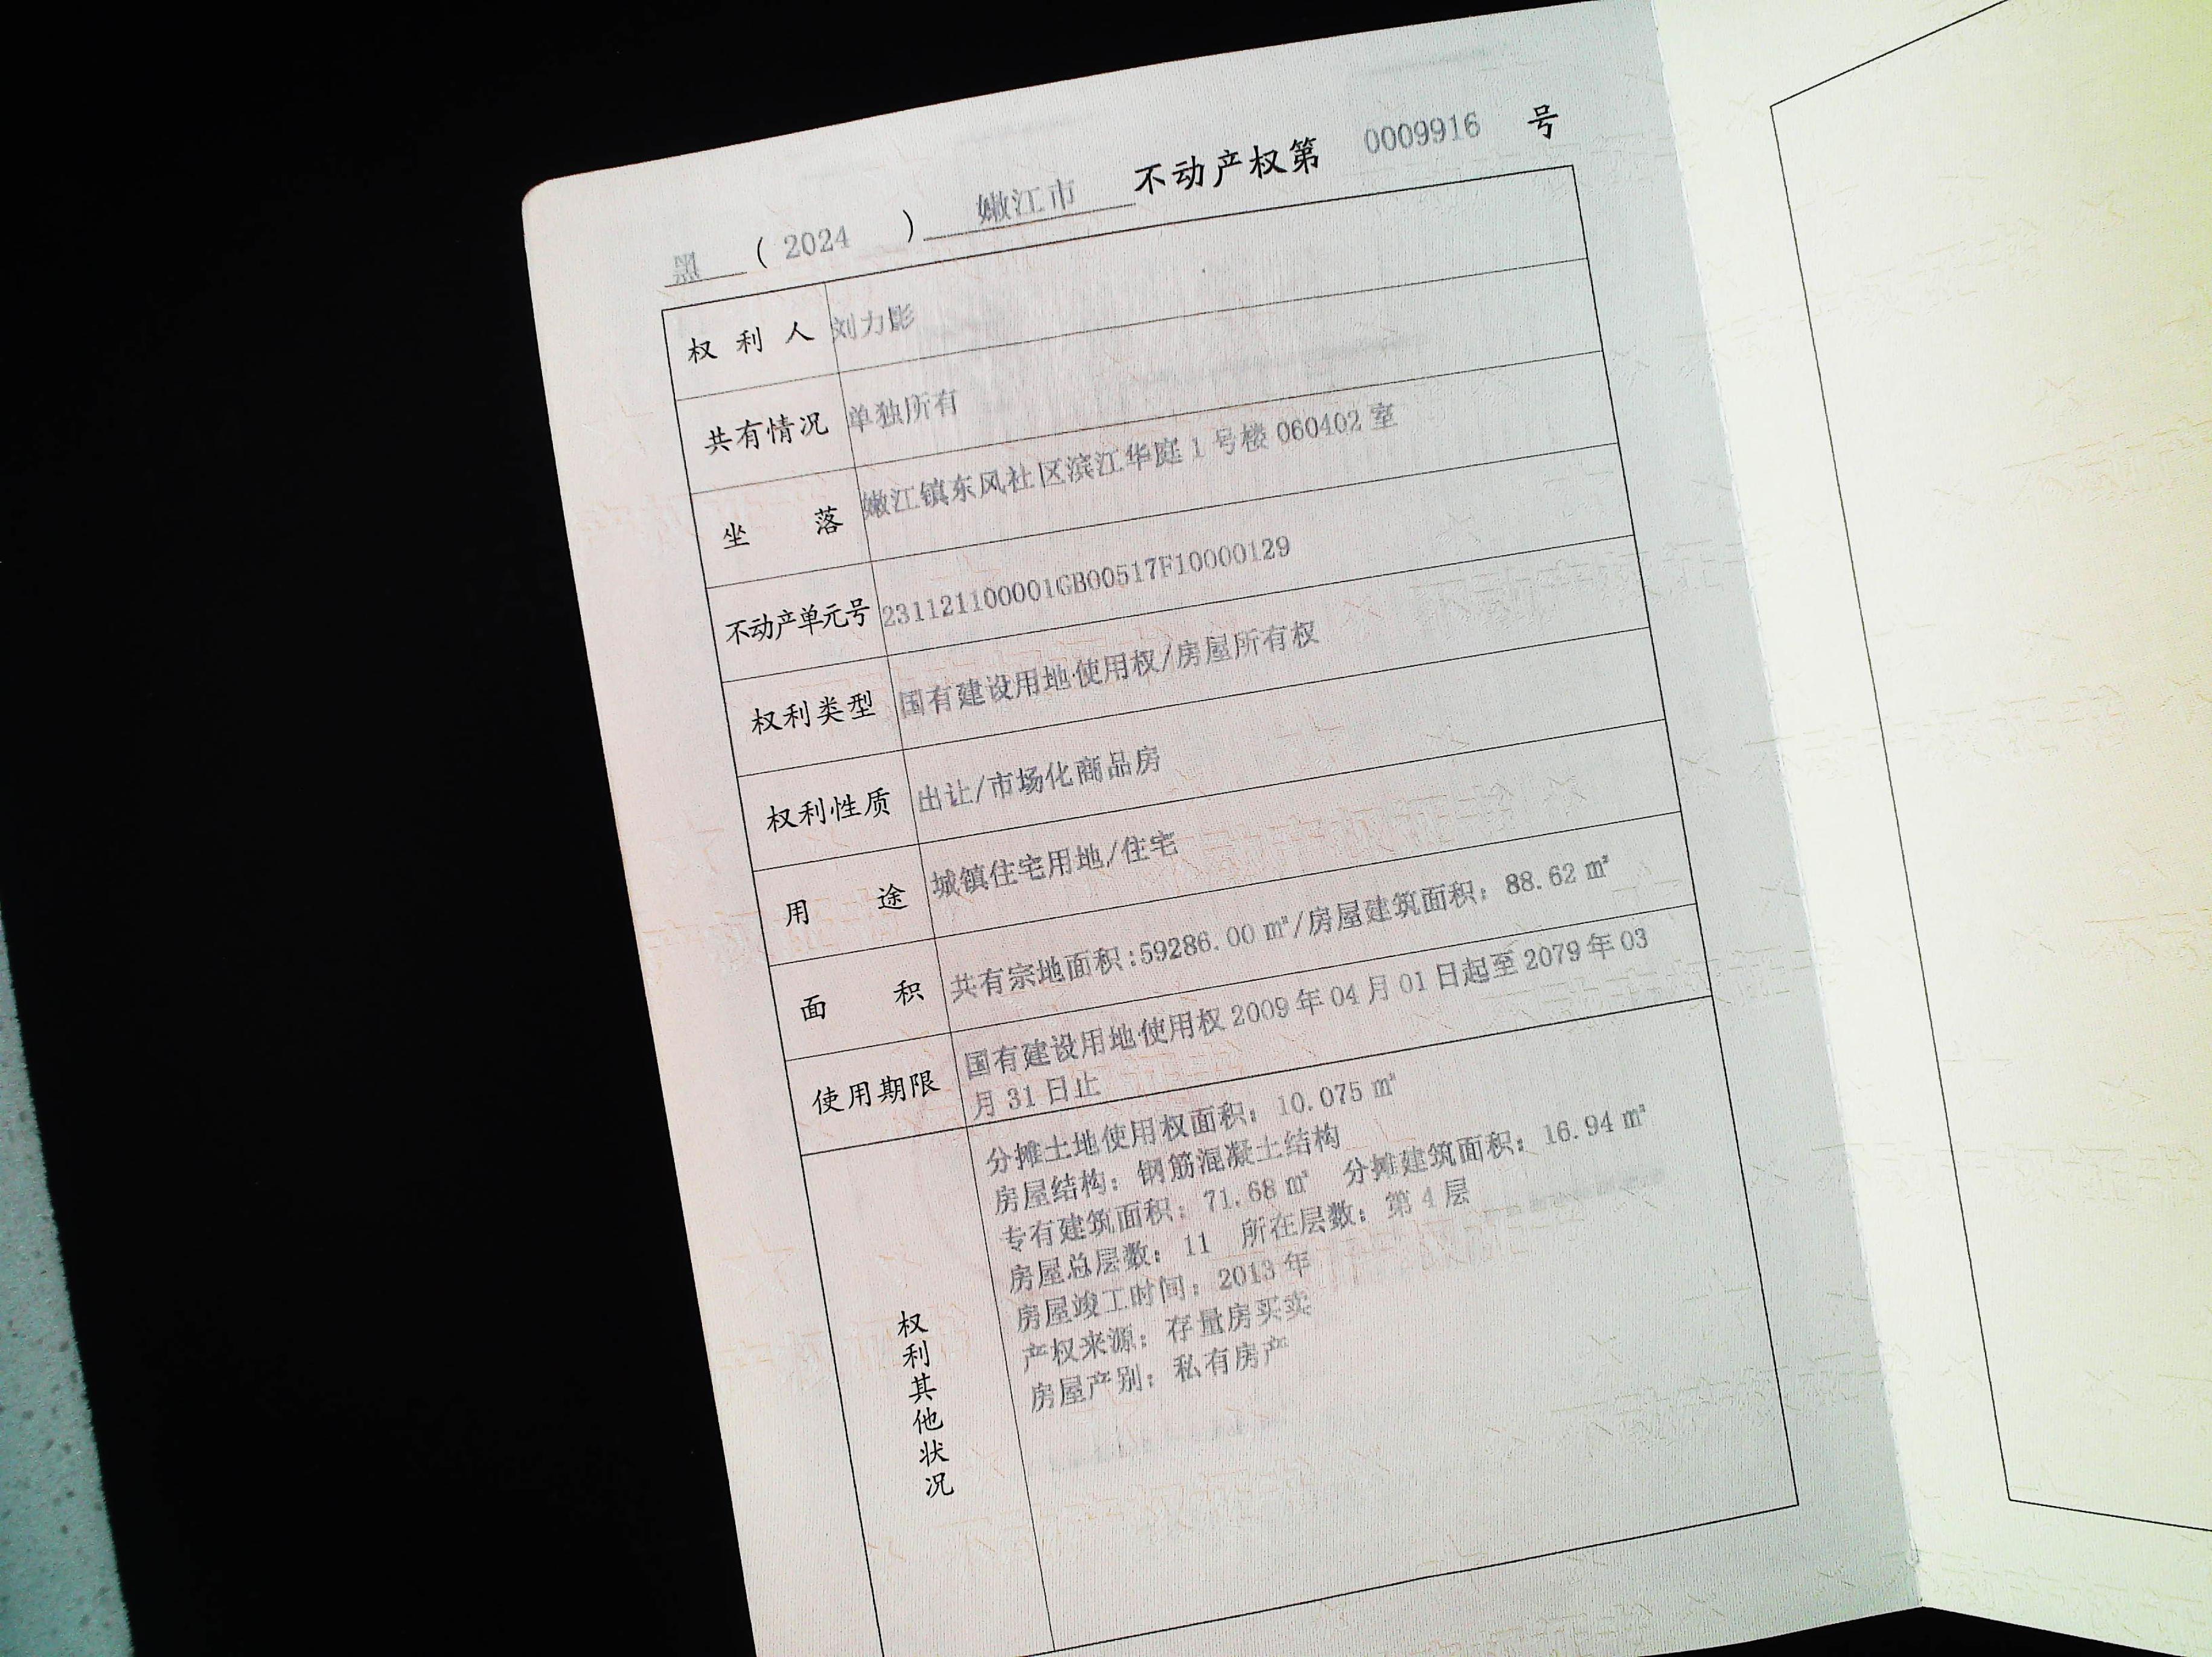 黑 ( 2024 ) 嫩江市 不动产权第 0009916 号
权利人 刘力影
共有情况 单独所有
坐落 嫩江镇东风社区滨江华庭 1 号楼 060402 室
不动产单元号 231121100001GB00517F10000129
权利类型 国有建设用地使用权/房屋所有权
权利性质 出让/市场化商品房
用途 城镇住宅用地/住宅
面积 共有宗地面积:59286.00 ㎡/房屋建筑面积：88.62 ㎡
使用期限 国有建设用地使用权 2009 年 04 月 01 日起至 2079 年 03
月 31 日止
权利其他状况
分摊土地使用权面积：10.075 ㎡
房屋结构：钢筋混凝土结构
专有建筑面积：71.68 ㎡ 分摊建筑面积：16.94 ㎡
房屋总层数：11 所在层数：第 4 层
房屋竣工时间：2013 年
产权来源：存量房买卖
房屋产别：私有房产